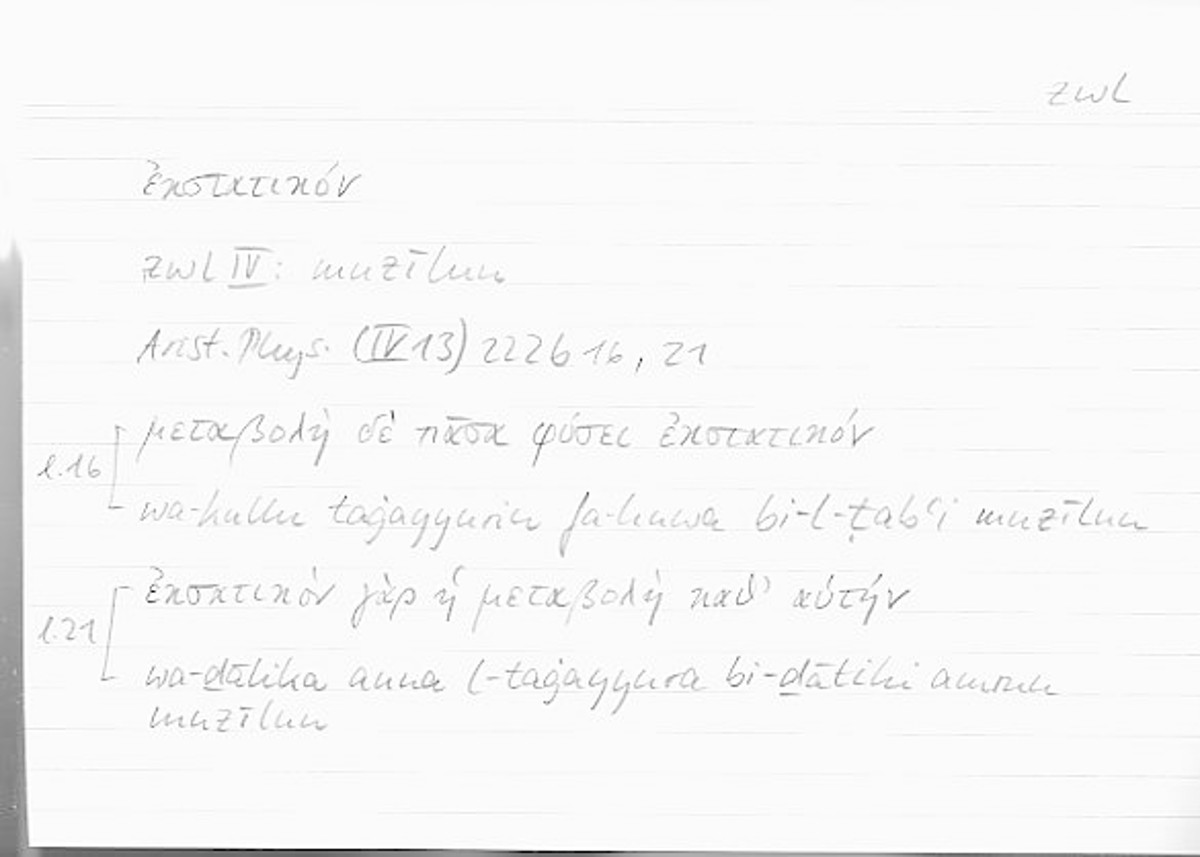 zwl
ἐκστατικόν
zwl IV: muzīlun
Arist. Phys. (IV 13) 222b 16, 21
l.16
μεταβολὴ δὲ πᾶσα φύσει ἐκστατικόν
wa-kullu taġayyurin fa-huwa bi-l-ṭabʿi muzīlun
l.21
ἐκστατικὸν γὰρ ἡ μεταβολὴ καθ' αὑτήν
wa-ḏālika anna l-taġayyura bi-ḏātihi amrun
muzīlun